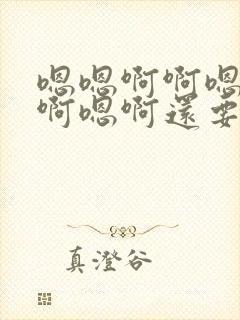 嗯嗯啊啊嗯
啊嗯啊還要
真澄谷